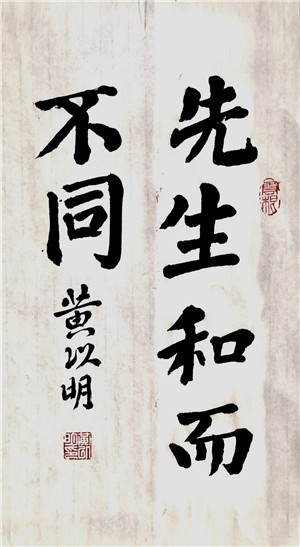 先生和而
不同
黄以明